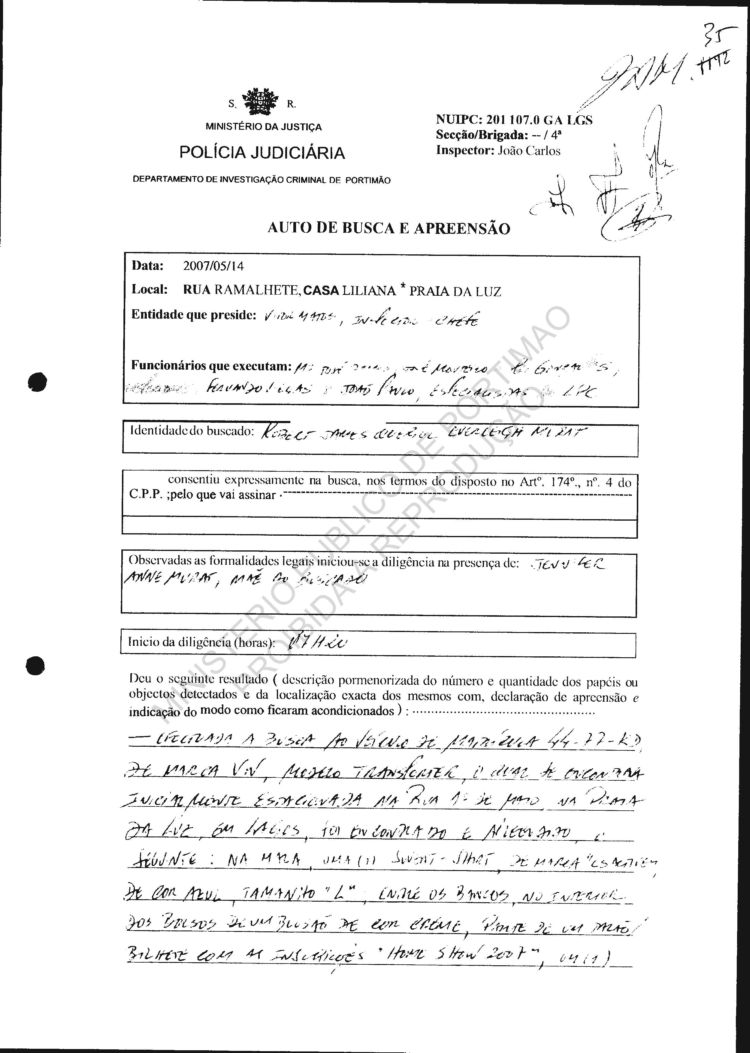 35
1192
S. R.
MINISTÉRIO DA JUSTIÇA
POLÍCIA JUDICIÁRIA
DEPARTAMENTO DE INVESTIGAÇÃO CRIMINAL DE PORTIMÃO
NUIPC: 201 107.0 GA LGS
Secção/Brigada: -- / 4ª
Inspector: João Carlos
AUTO DE BUSCA E APREENSÃO
Data: 2007/05/14
Local: RUA RAMALHETE, CASA LILIANA * PRAIA DA LUZ
Entidade que preside: VITOR MATOS, INSPECTOR - CHEFE
Funcionários que executam:
E JOÃO PAULO, ESPECIALISTAS LPC
Identidade do buscado: ROBERT JAMES QUERIOL EVELEIGH MURAT
consentiu expressamente na busca, nos termos do disposto no Artº. 174º., nº. 4 do
C.P.P. ;pelo que vai assinar .-
Observadas as formalidades legais iniciou-se a diligência na presença de: JENNIFER
ANNE MURAT, MÃE DO BUSCADO
Inicio da diligência (horas): 07H20
Deu o seguinte resultado ( descrição pormenorizada do número e quantidade dos papéis ou
objectos detectados e da localização exacta dos mesmos com, declaração de apreensão e
indicação do modo como ficaram acondicionados ) :
— EFECTUADA A BUSCA AO VEÍCULO DE MATRÍCULA 44-77-KD,
DE MARCA VW, MODELO TRANSPORTER, O QUAL SE ENCONTRAVA
INICIALMENTE ESTACIONADA NA RUA 1º DE MAIO, NA PRAIA
DA LUZ, EM LAGOS, FOI ENCONTRADO E APREENDIDO, O
SEGUINTE : NA MALA, UMA (1) SWEAT-SHIRT, DE MARCA
DE COR AZUL, TAMANHO "L" ; ENTRE OS BANCOS, NO INTERIOR
DOS BOLSOS DE UM BLUSÃO DE COR CREME, PARTE DE UM
BILHETE COM AS INSCRIÇÕES "HOME SHOW 2007", UM (1)
MINISTÉRIO PÚBLICO DE PORTIMÃO
PROIBIDA A REPRODUÇÃO